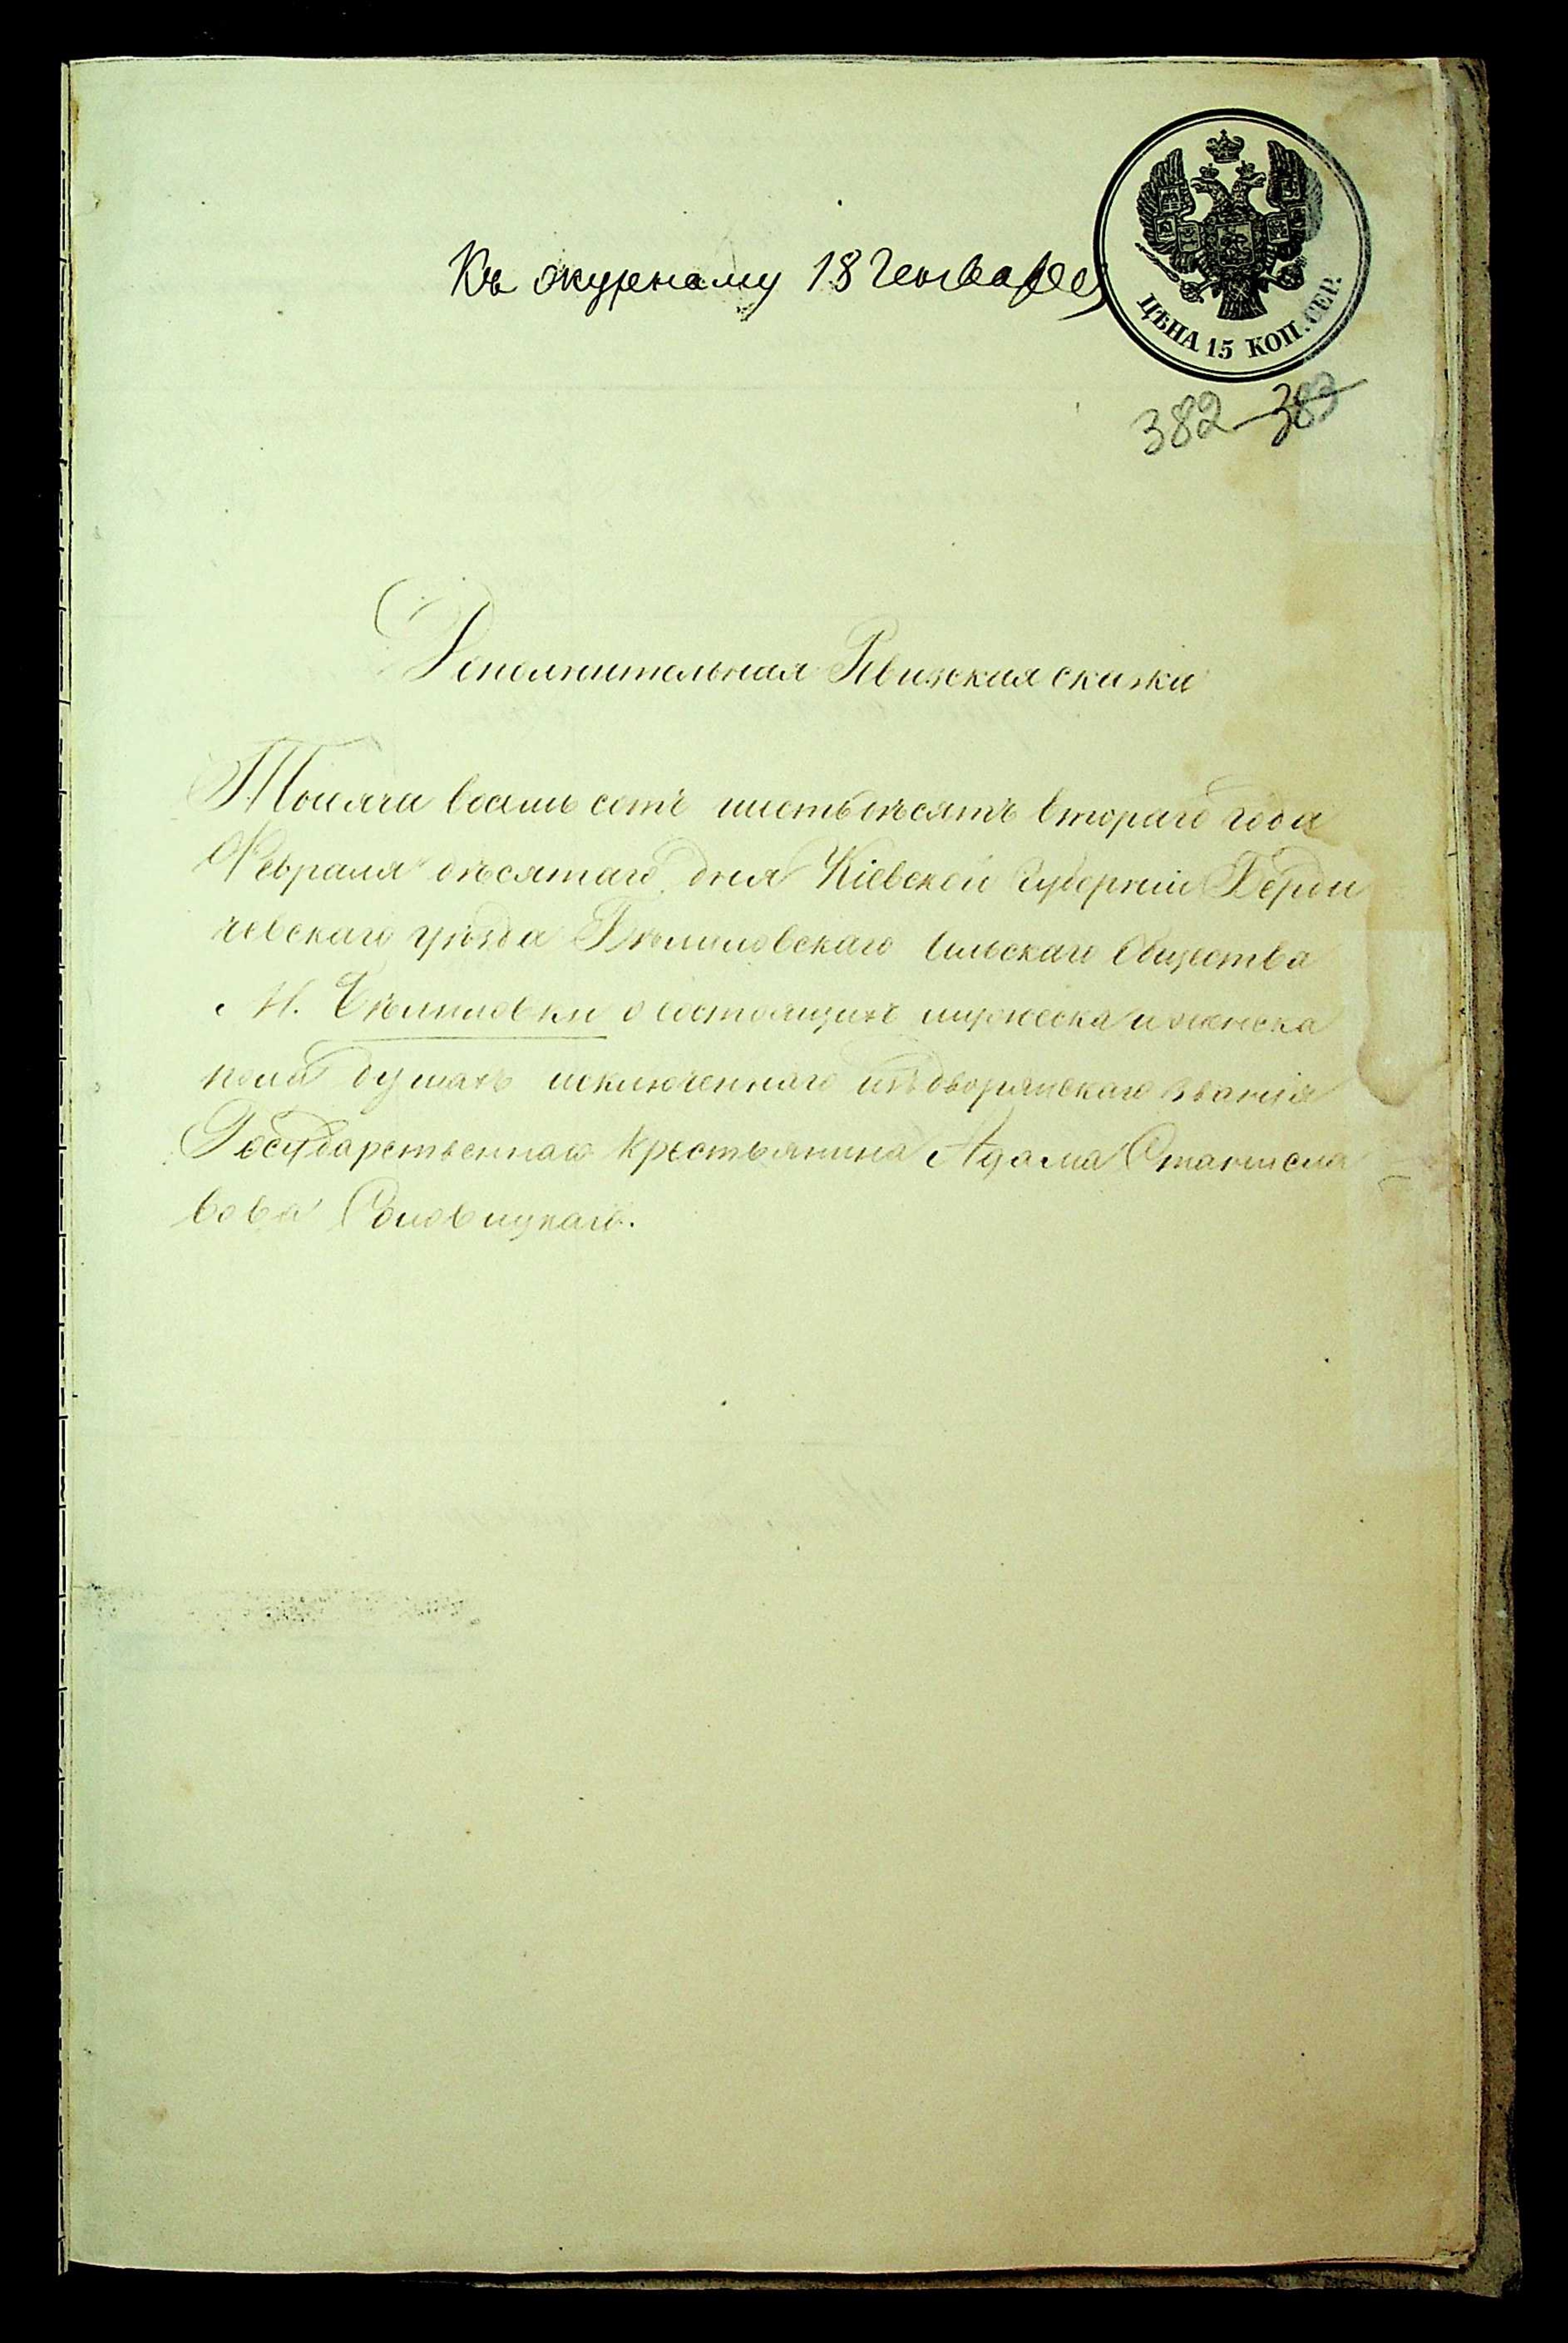 Къ журналу 18 Генваря
ЦѢНА 15 КОП. СЕР.
382 383
Дополнительная Ревизская сказка
Тысяча восемь сотъ шестьдѣсятъ втораго года
Февраля дѣсятаго дня Кіевской Губерніи Берди
чевскаго уѣзда Бѣлиловскаго Сельскаго Общества
М. Бѣлиловки о состоящихъ мужеска и женска
пола душахъ исключеннаго изъ дворянскаго званія
Государственнаго крестьянина Адама Станисла
вова Соловицкаго.